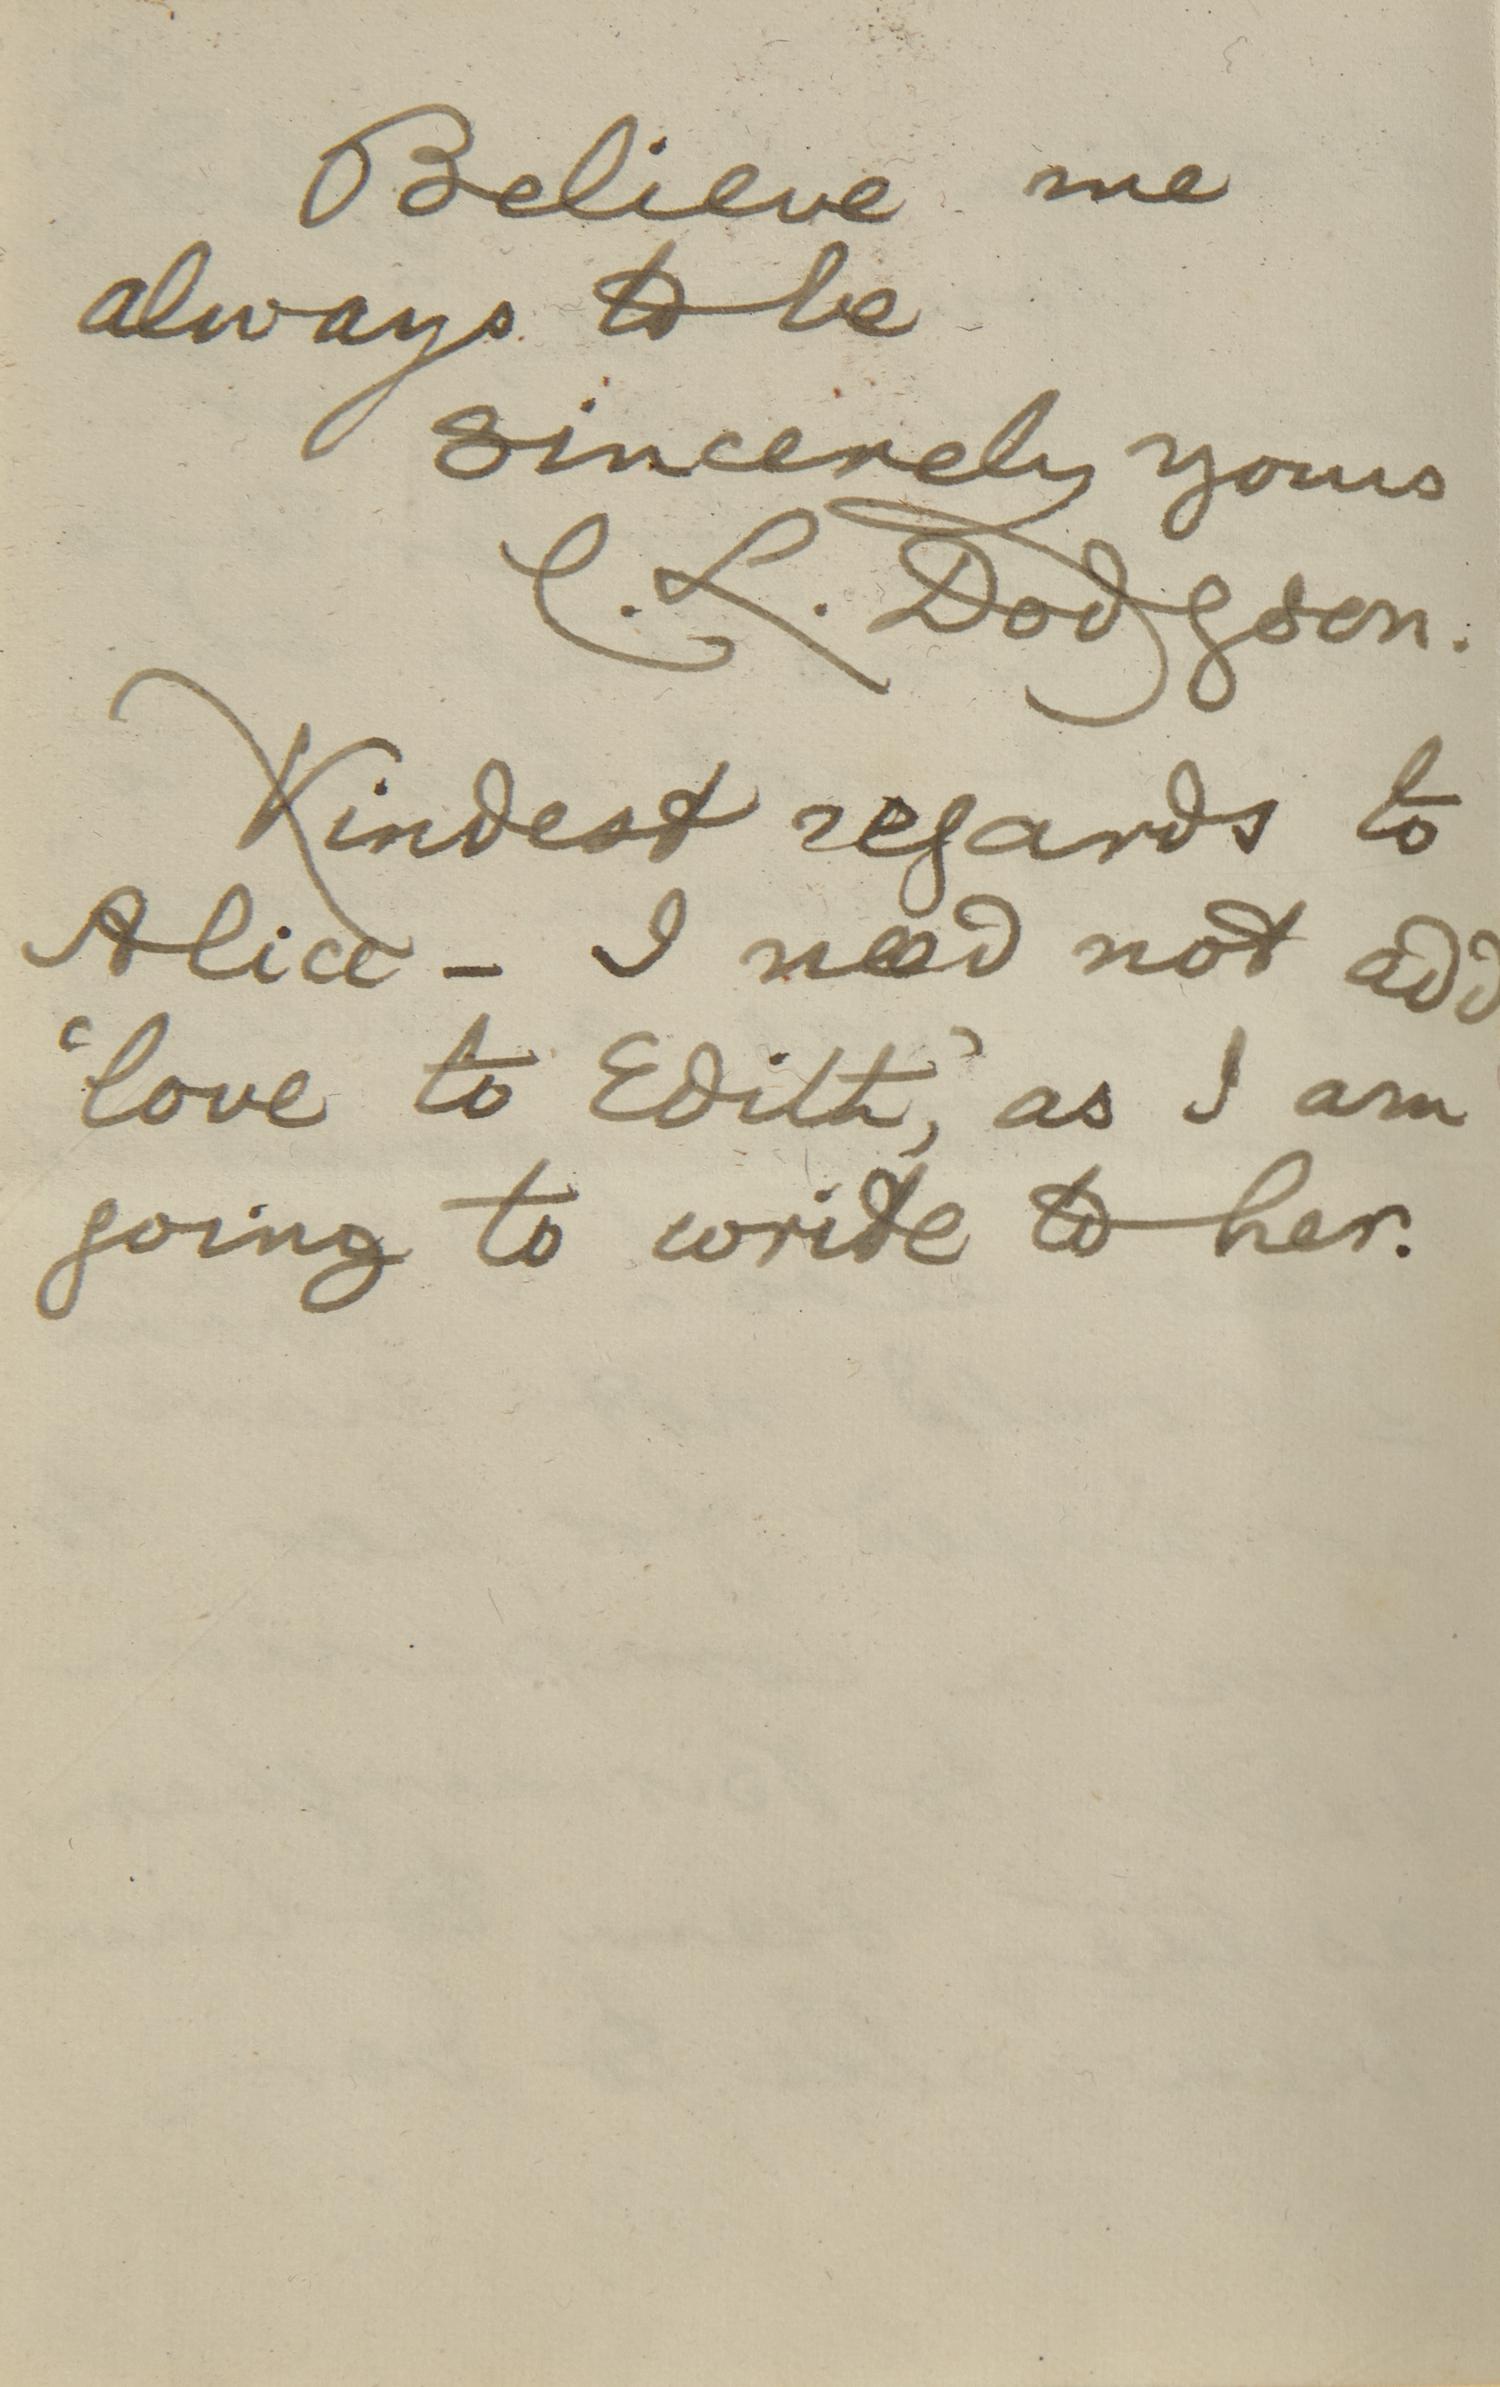 Believe me
always to be
sincerely yours
C. L. Dodgson.
Kindest regards to
Alice - I need not add
'love to Edith,' as I am
going to write to her.